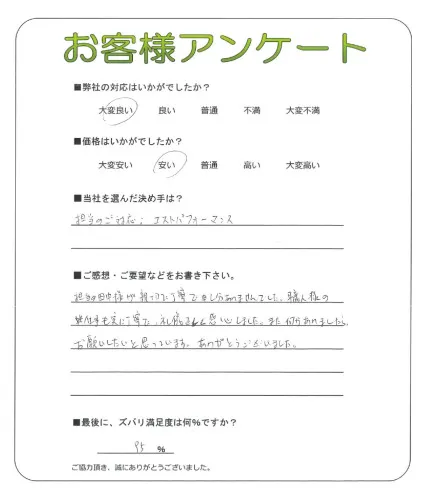 お客様アンケート
■弊社の対応はいかがでしたか？
大変良い 良い 普通 不満 大変不満
■価格はいかがでしたか？
大変安い 安い 普通 高い 大変高い
■当社を選んだ決め手は？
担当のご対応；コストパフォーマンス
■ご感想・ご要望などをお書き下さい。
担当の田中様が親切に丁寧で申し分ありませんでした。職人様の
お仕事も実に丁寧で、礼儀正しく思いしました。また何かありましたら、
お願いしたいと思っています。ありがとうございました。
■最後に、ズバリ満足度は何％ですか？
95 ％
ご協力頂き、誠にありがとうございました。